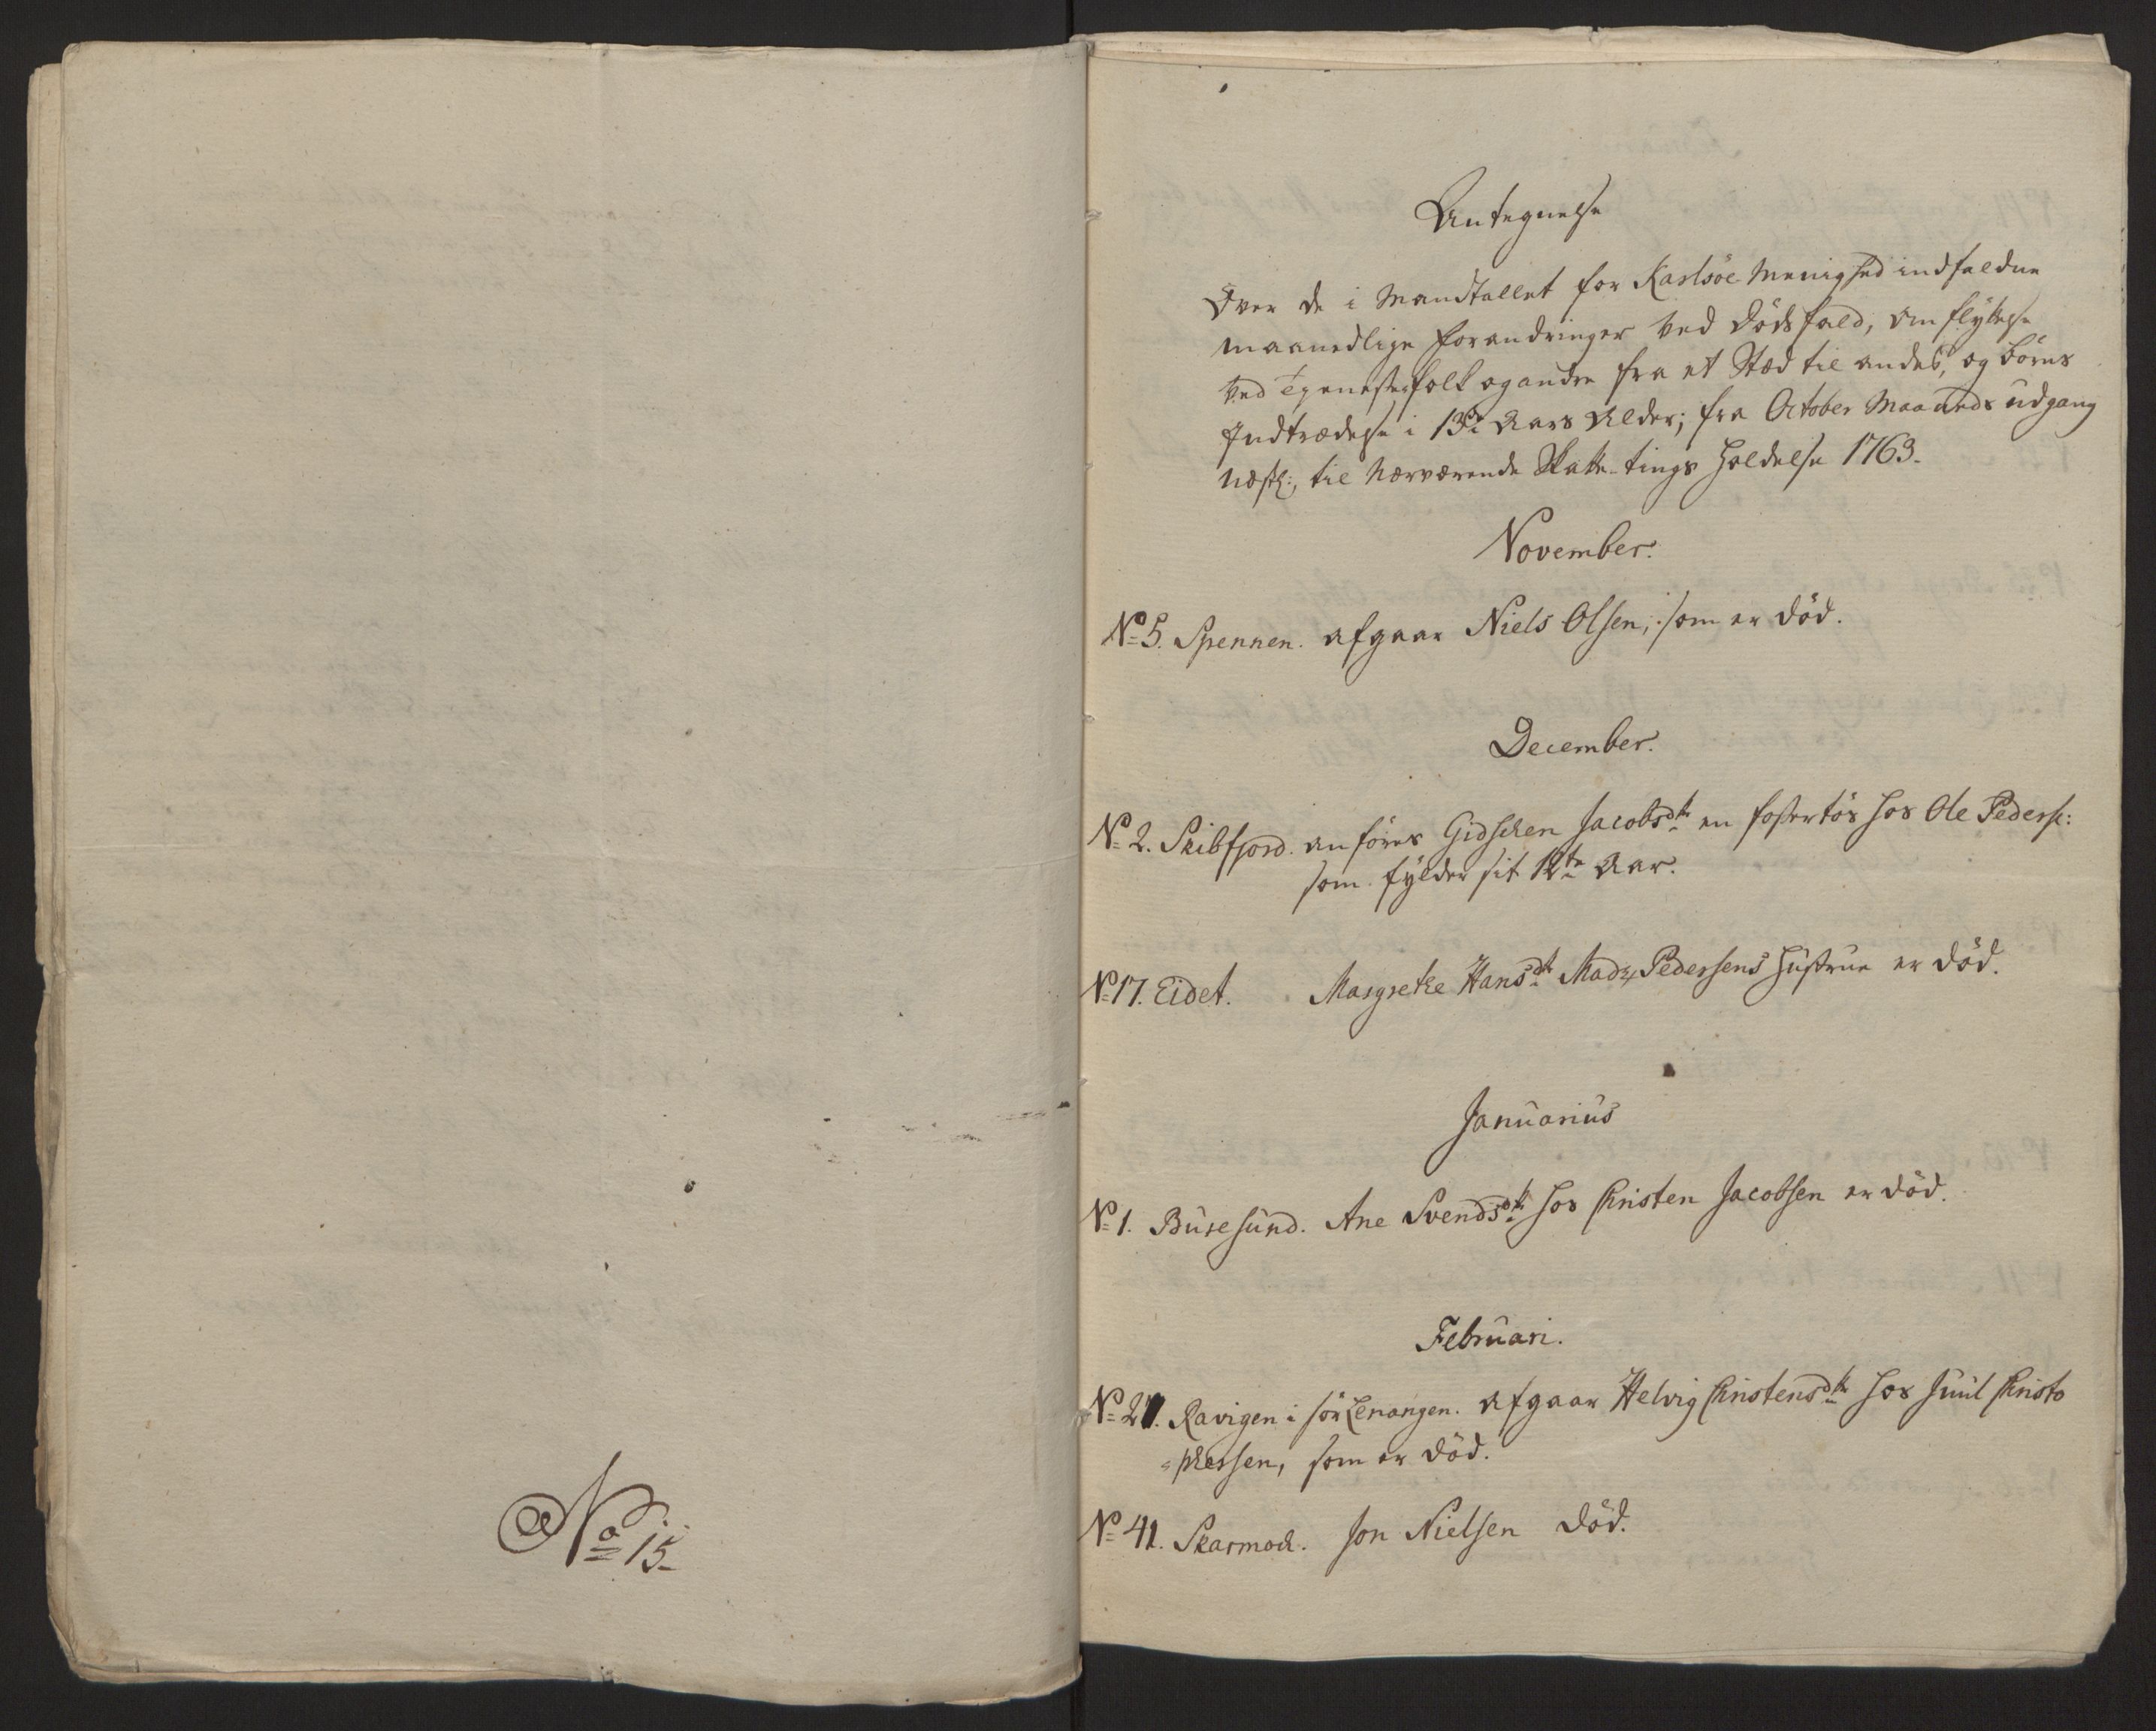 No 15
Antegnelse
Over de i Mandtallet for Karlsöe Menighed indfaldne
maanedlige forandringer ved Dödsfald, Omflÿttelse
ved Tienestefolk og andre fra et Stæd til andet, og Börns
Indtrædelse i 13de Aars Alder; fra October Maaneds udgang
næstl:, til nærværende Skatte-tings Holdelse 1763.
November.
No 5. Spennen. afgaar Niels Olsen, som er död.
December.
No 2. Skibfjord. anföres Gidschen Jacobsdtr en fostertös hos Ole Peders:
som fÿlder sit 12te Aar.
No 17. Eidet. Margrethe Hansdt Mads Pedersens Hustrue er död.
Januarius
No 1. Buresund. Ane Svendsdtr hos Christen Jacobsen er död.
Februari.
No 27. Ravigen i sör Lenangen. afgaar Helvig Christensdtr hos Christo
phersen, som er död.
No 41. Skarmoch. Jon Nielsen död.